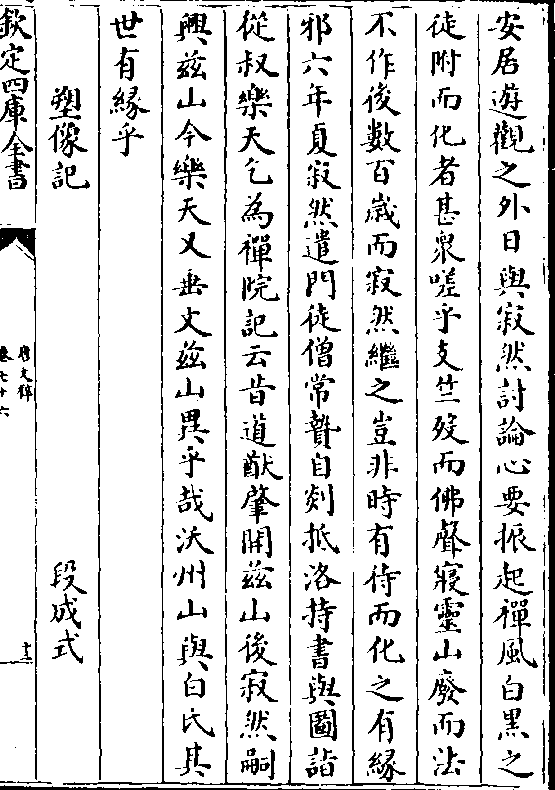 安居遊觀之外日與寂然討論心要振起禪風白黑之
徒附而化者甚衆嗟乎支竺殁而佛聲寢靈山廢而法
不作後數百嵗而寂然繼之豈非時有待而化之有緣
邪六年夏寂然遣門徒僧常贄自剡抵洛持書與圖詣
從叔樂天乞為禪院記云昔道猷肇開兹山後寂然嗣
興兹山今樂天又垂文兹山異乎哉沃州山與白氏其
世有緣乎
塑像記 段成式
欽定四庫全書
唐文粹
卷七十六